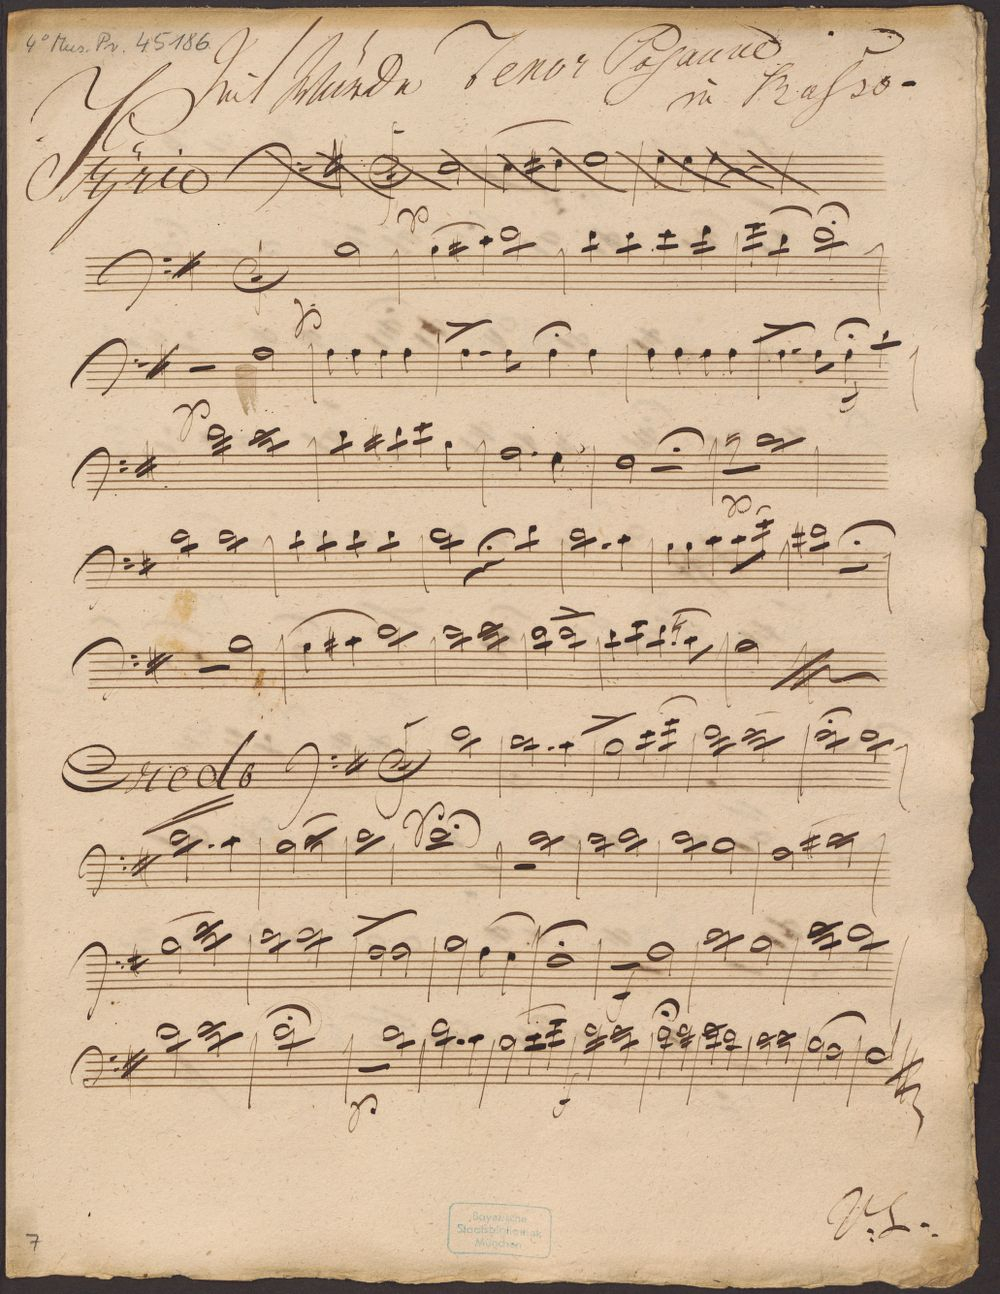 4° Mus. Pr. 45186
Mit Würde Tenor Posaune
in Basso.
Kÿrie
p
p
f
p
p
Credo
p
f
p
f
V: S:
Bayerische
Staatsbibliothek
München
7